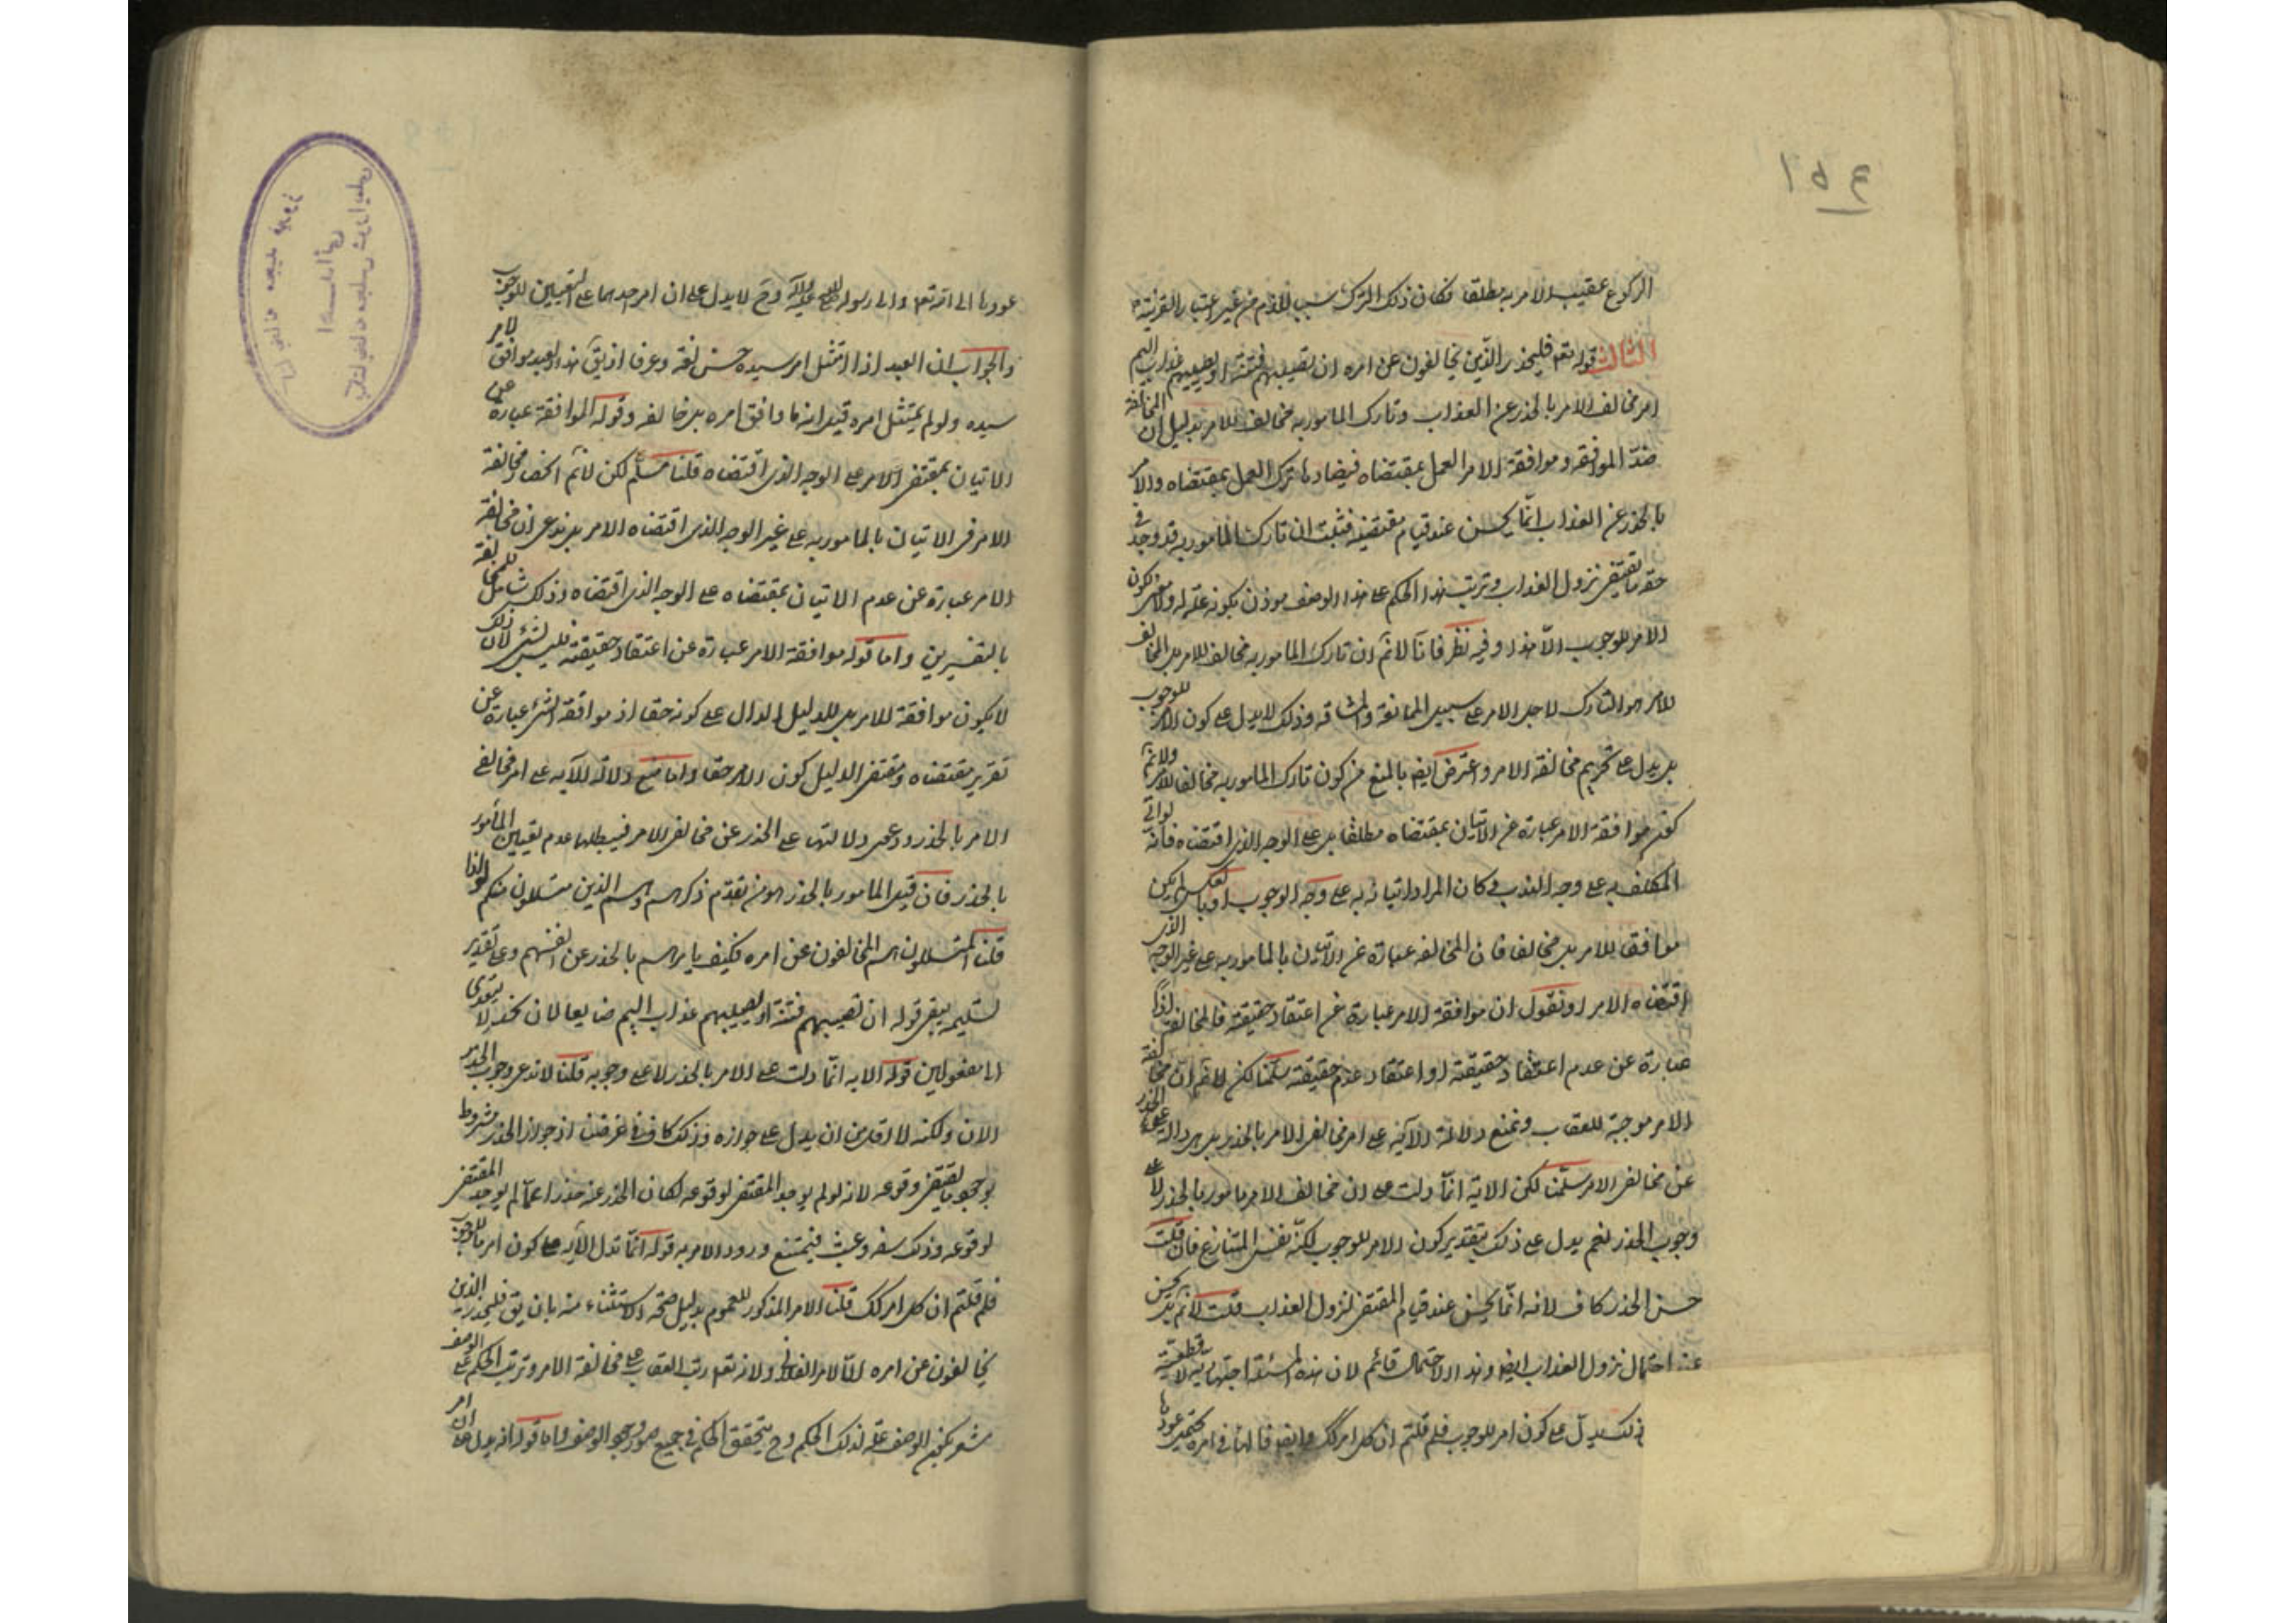 ١٥٤
الركوع عقيب الامر به مطلقا فكان ذلك الترك سببا للذم من غير اعتبار القرينة
الثالث قوله تعم فليحذر الذين يخالفون عن امره ان تصيبهم فتنة او يصيبهم عذاب اليم
امر مخالف الامر بالحذر عن العذاب وتارك المامور به مخالف للامر بدليل ان المخالفة
ضدّ الموافقه وموافقة الامر العمل بمقتضاه فيضادها ترك العمل بمقتضاه والامر
بالحذر عن العذاب انّما يحسن عند قيام مقتضيه فثبت ان تارك المامور به قد وجد في
حقه ما يقتضى نزول العذاب وترتب هذا الحكم على هذا الوصف موذن بكونه علّة له ولا معنى لكون
الامر للوجوب الّا هذا وفيه نظر فانّا لا نم ان تارك المامور به مخالف للامر بل المخالف
للامر هو التارك لاجل الامر على سبيل الممانعة والمشاقه وذلك لا يدل على كون الامر للوجوب
بل يدل على تحريم مخالفة الامر واعترض ايضا بالمنع من كون تارك المامور به مخالفا للامر ولا نم
كون موافقة الامر عبارة عن الاتيان بمقتضاه مطلقا بل على الوجه الذى اقتضاه فانّه لو اتى
المكلف به على وجه الندب وكان المراد اتيانه به على وجه الوجوب او بالعكس لم يكن
موافقا للامر بل مخالفا فان المخالفه عبارة عن الاتيان بالمامور به على غير الوجه الذى
اقتضاه الامر او نقول ان موافقة الامر عبارة عن اعتقاد حقيقته فالمخالفة اذًا
عبارة عن عدم اعتقاد حقيقته او اعتقاد عدم حقيقته سلّمنا لكن لا نم ان مخالفة
الامر موجبة للعقاب ونمنع دلالة الآية على امر مخالف الامر بالحذر بل هي دالة على الحذر
عن مخالف الامر سلّمنا لكن الاية انّما دلت على ان مخالف الامر مامور بالحذر لا على
وجوب الحذر نعم يدل على ذلك بتقدير كون الامر للوجوب لكنّه نفس المتنازع فان قلت
حسن الحذر كاف لانه انّما يحسن عند قيام المقتضى لنزول العذاب قلت لا نم بل يحسن
عند احتمال نزول العذاب ايضا وهذا الاحتمال قائم لان هذه المسئلة اجتهادية لا قطعية
ذلك يدل على كون امر للوجوب فلم قلتم ان كل امر كك وايضا فالهاء فى امره يحتمل عودها
عودها الى الله تعم والى رسوله صلى الله عليه وآله وح لا يدل على ان امر احدهما على التعيين للوجوب
والجواب ان العبد اذا امتثل امر سيده حسن لغة وعرفا ان يق هذا العبد موافق لامر
سيده ولو لم يمتثل امره قيل انه ما وافق امره بل خالفه وقوله الموافقة عبارة عن
الاتيان بمقتضى الامر على الوجه الذى اقتضاه قلنا مسلّم لكن لا نم انحصار مخالفة
الامر فى الاتيان بالمامور به على غير الوجه الذى اقتضاه الامر بل ندعى ان مخالفة
الامر عبارة عن عدم الاتيان بمقتضاه على الوجه الذى اقتضاه وذلك شامل للمخالفة
بالتفسيرين واما قوله موافقة الامر عبارة عن اعتقاد حقيقته فليس بشئ لان ذلك
لا يكون موافقة للامر بل للدليل الدال على كونه حقا اذ موافقة الشئ عبارة عن
تقرير مقتضاه ومقتضى الدليل كون الامر حقا واما منع دلالة الآيه على امر مخالفى
الامر بالحذر ودعوى دلالتها على الحذر عن مخالف الامر فيبطلها عدم تعيين المأمور
بالحذر فان قيل المامور بالحذر هو من تقدّم ذكرهم وهم الذين يتسللون منكم لواذا
قلنا المتسللون هم المخالفون عن امره فكيف يامرهم بالحذر عن انفسهم وعلى تقدير
تسليمه يبقى قوله ان تصيبهم فتنة او يصيبهم عذاب اليم ضايعا لان يحذر لا يتعدى
الى مفعولين قوله الايه انّما دلت على الامر بالحذر لا على وجوبه قلنا لا ندعى وجوب الحذر
الان ولكنه لا اقل من ان يدل على جوازه وذلك كاف فى غرضنا اذ جواز الحذر مشروط
بوجود ما يقتضى وقوعه لانه لو لم يوجد المقتضى لوقوعه لكان الحذر عنه حذرا عمّا لم يوجد المقتضى
لوقوعه وذلك سفه وعبث فيمتنع ورود الامر به قوله انّما تدل الآية على كون امر ما للوجوب
فلم قلتم ان كل امر كك قلنا الامر المذكور للعموم بدليل صحّة الاستثناء منه بان يق فليحذر الذين
يخالفون عن امره الّا الامر الفلانى ولانه تعم رتب العقاب على مخالفة الامر وترتب الحكم على الوصف
مشعر بكون الوصف علّة لذلك الحكم وح يتحقق الحكم فى جميع صور وجود الوصف واما قوله انه يدل على ان امر